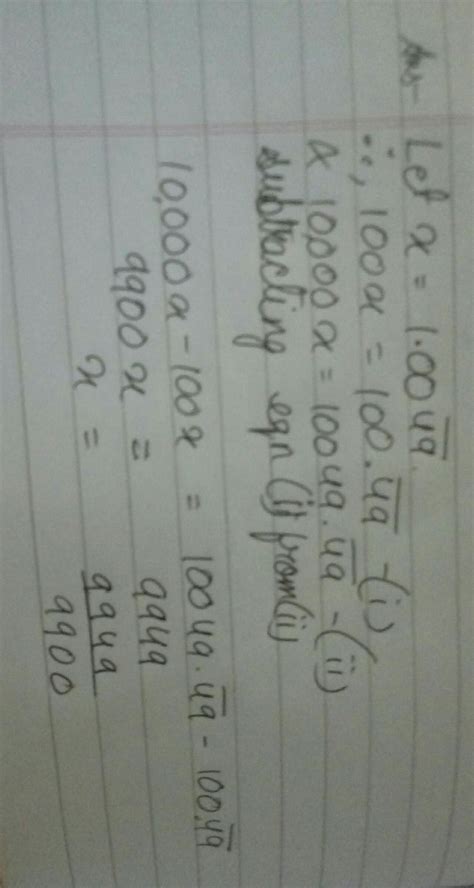 Ans- Let x = 1.004̅9̅
∴, 100x = 100.4̅9̅ -(i)
x 10,000x = 10049.4̅9̅ -(ii)
subtracting eqn (i) from (ii)
10,000x - 100x = 10049.4̅9̅ - 100.4̅9̅
9900x = 9949
x = 9949
9900